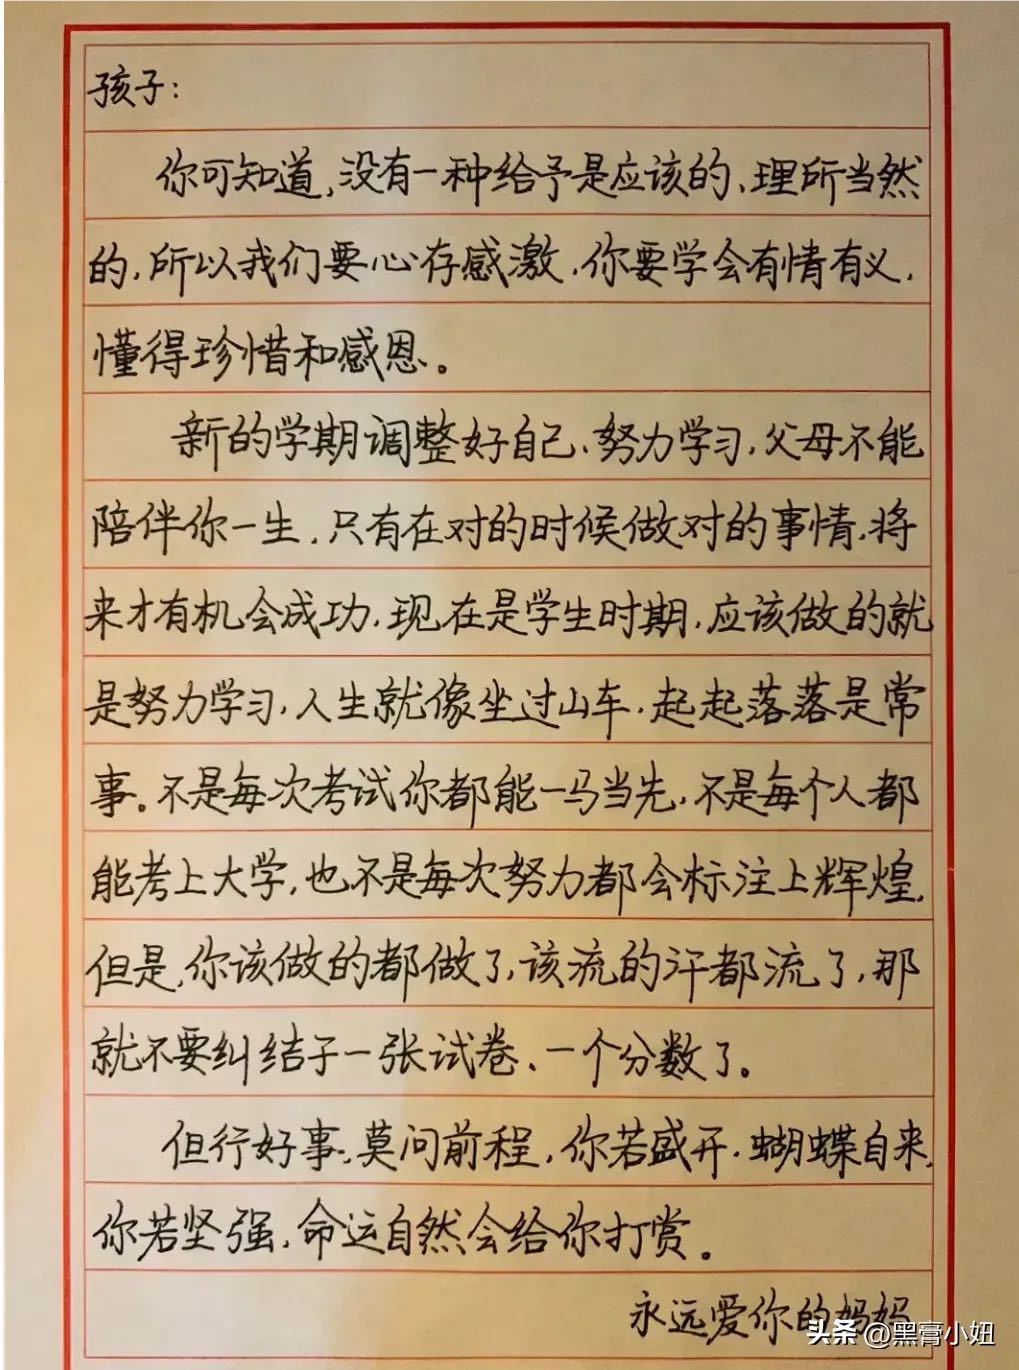 孩子：
你可知道，没有一种给予是应该的、理所当然
的，所以我们要心存感激，你要学会有情有义，
懂得珍惜和感恩。
新的学期调整好自己、努力学习，父母不能
陪伴你一生，只有在对的时候做对的事情，将
来才有机会成功，现在是学生时期，应该做的就
是努力学习，人生就像坐过山车，起起落落是常
事。不是每次考试你都能一马当先，不是每个人都
能考上大学，也不是每次努力都会标注上辉煌，
但是，你该做的都做了，该流的汗都流了，那
就不要纠结于一张试卷、一个分数了。
但行好事，莫问前程，你若盛开，蝴蝶自来，
你若坚强，命运自然会给你打赏。
永远爱你的妈妈
头条 @黑膏小妞